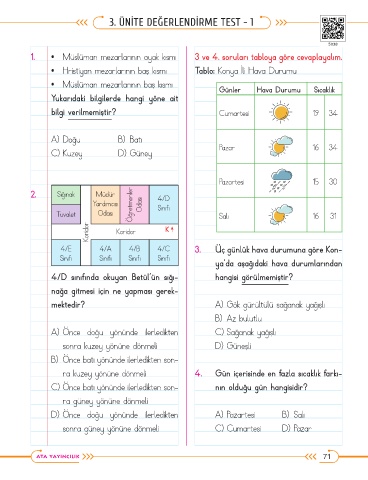 3. ÜNİTE DEĞERLENDİRME TEST - 1
1. • Müslüman mezarlarının ayak kısmı
• Hristiyan mezarlarının baş kısmı
• Müslüman mezarlarının baş kısmı
Yukarıdaki bilgilerde hangi yöne ait
bilgi verilmemiştir?
A) Doğu B) Batı
C) Kuzey D) Güney
2.
Sığınak
Müdür
Yardımcısı
Odası
Öğretmenler
Odası
4/D
Sınıfı
Tuvalet
Koridor
Koridor
K
4/E
Sınıfı
4/A
Sınıfı
4/B
Sınıfı
4/C
Sınıfı
4/D sınıfında okuyan Betül'ün sığı-
nağa gitmesi için ne yapması gerek-
mektedir?
A) Önce doğu yönünde ilerledikten
sonra kuzey yönüne dönmeli
B) Önce batı yönünde ilerledikten son-
ra kuzey yönüne dönmeli
C) Önce batı yönünde ilerledikten son-
ra güney yönüne dönmeli
D) Önce doğu yönünde ilerledikten
sonra güney yönüne dönmeli
3 ve 4. soruları tabloya göre cevaplayalım.
Tablo: Konya İli Hava Durumu
Günler Hava Durumu Sıcaklık
Cumartesi 19 34
Pazar 16 34
Pazartesi 15 30
Salı 16 31
3. Üç günlük hava durumuna göre Kon-
ya'da aşağıdaki hava durumlarından
hangisi görülmemiştir?
A) Gök gürültülü sağanak yağışlı
B) Az bulutlu
C) Sağanak yağışlı
D) Güneşli
4. Gün içerisinde en fazla sıcaklık farkı-
nın olduğu gün hangisidir?
A) Pazartesi B) Salı
C) Cumartesi D) Pazar
ATA YAYINCILIK
71